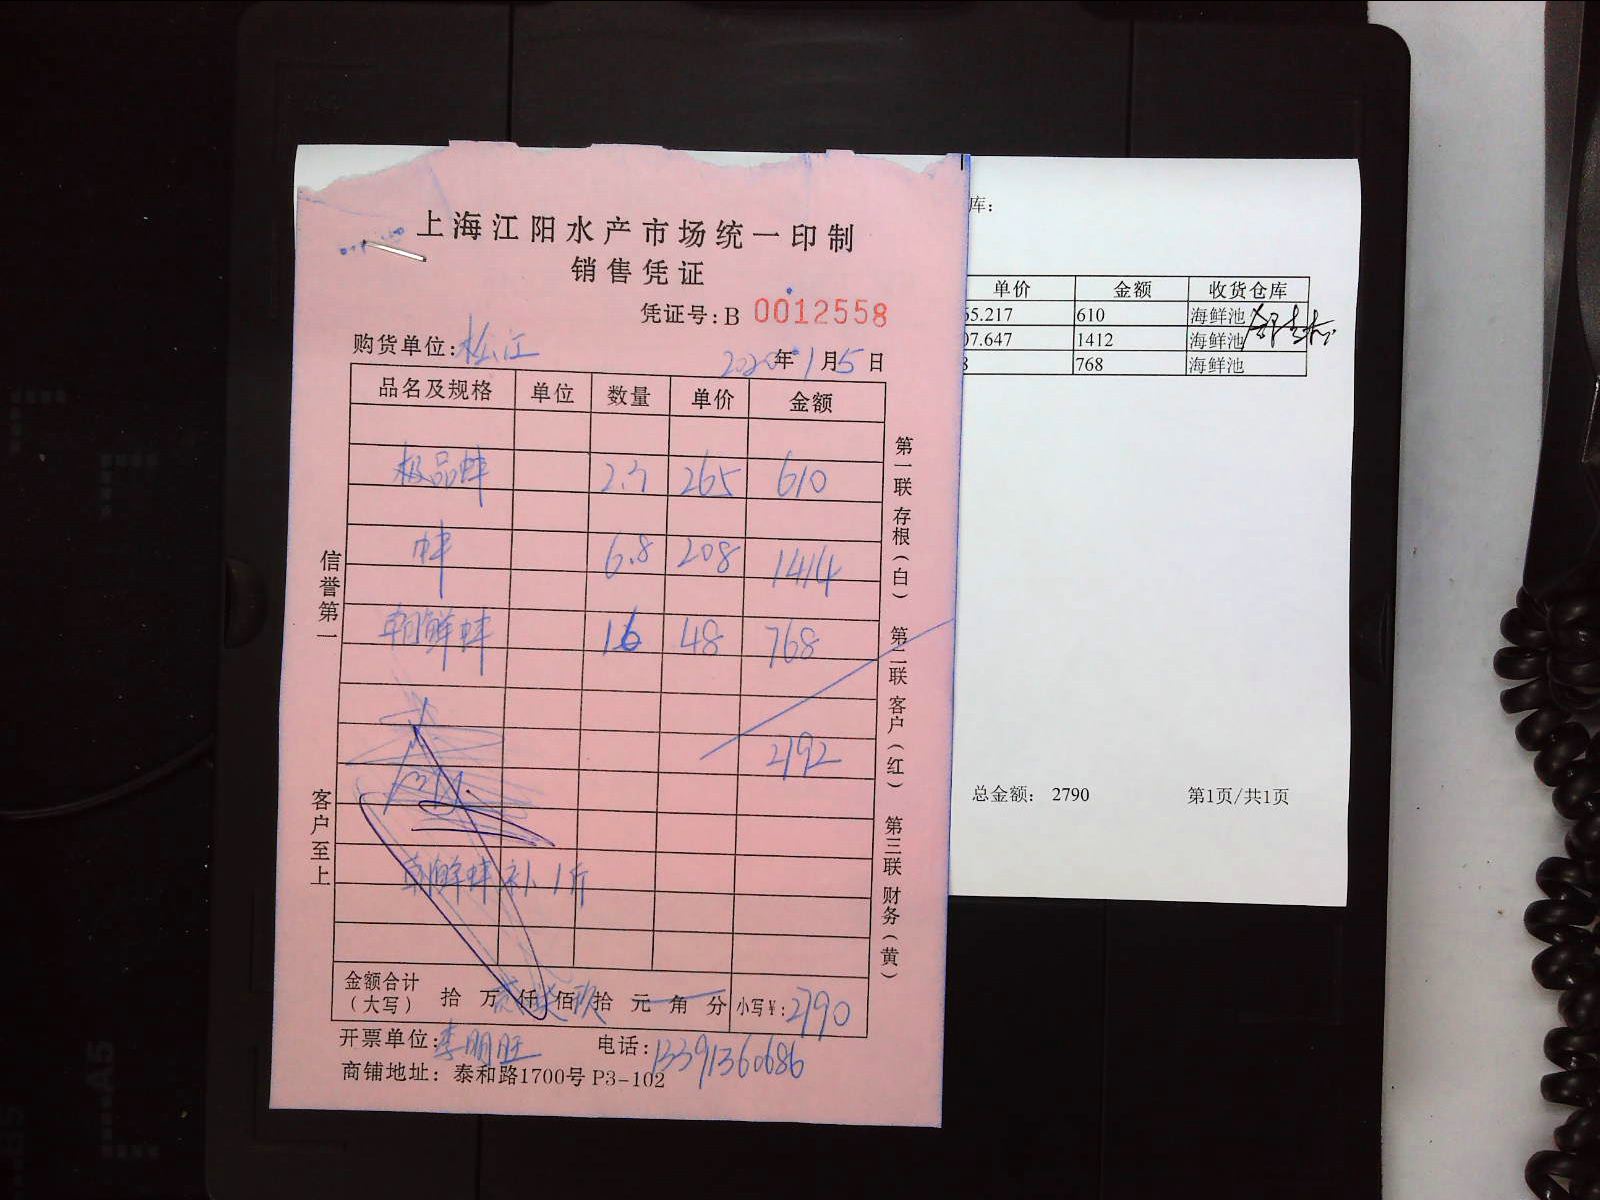 上海江阳水产市场统一印制
销售凭证
凭证号:B 0012558
购货单位:松江
2020年1月5日
品名及规格 单位 数量 单价 金额
极品蚌 2.3 265 610
蚌 6.8 208 1414
朝鲜蚌 16 48 768
2792
朝鲜蚌补1斤
金额合计
(大写) 拾 万 仟 佰 拾 元 角 分 小写¥:2790
开票单位:李明旺 电话:13391360686
商铺地址: 泰和路1700号 P3-102
信誉第一
客户至上
第一联 存根(白) 第二联 客户(红) 第三联 财务(黄)
库:
单价 金额 收货仓库
65.217 610 海鲜池
07.647 1412 海鲜池
8 768 海鲜池
总金额: 2790 第1页/共1页